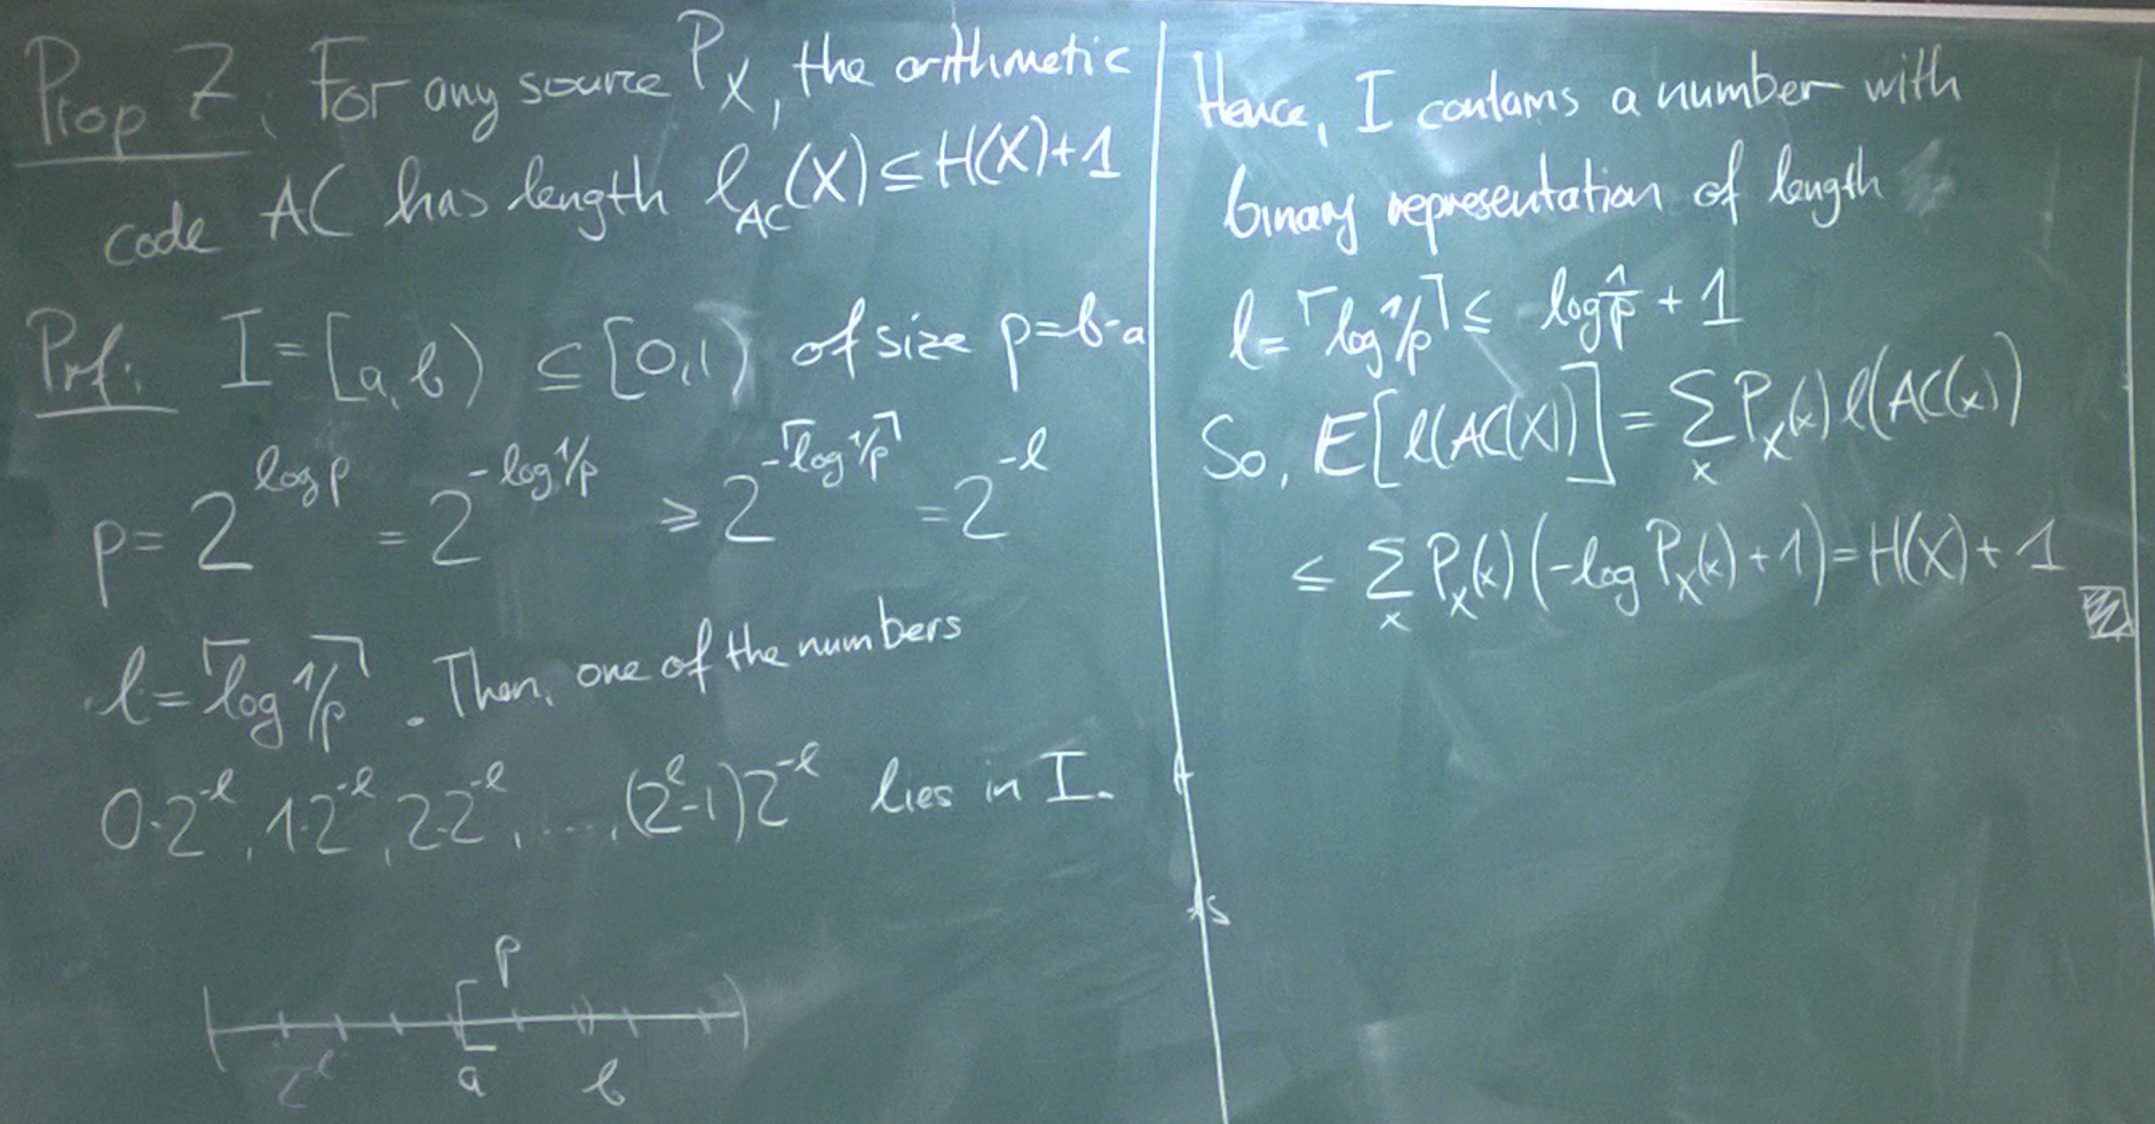 Prop 7: For any source P_X, the arithmetic
code AC has length ℓ_AC(X) ≤ H(X)+1
Prf: I = [a,b) ⊆ [0,1) of size p=b-a
p = 2^{log p} = 2^{-log 1/p} ≥ 2^{-⌈log 1/p⌉} = 2^{-ℓ}
ℓ = ⌈log 1/p⌉. Then, one of the numbers
0·2^{-ℓ}, 1·2^{-ℓ}, 2·2^{-ℓ}, ...., (2^ℓ-1)2^{-ℓ} lies in I.
p
a b
Hence, I contains a number with
binary representation of length
ℓ = ⌈log 1/p⌉ ≤ log 1/p + 1
So, E[ℓ(AC(X))] = Σ_x P_X(x) ℓ(AC(x))
≤ Σ_x P_X(x)(-log P_X(x)+1) = H(X)+1